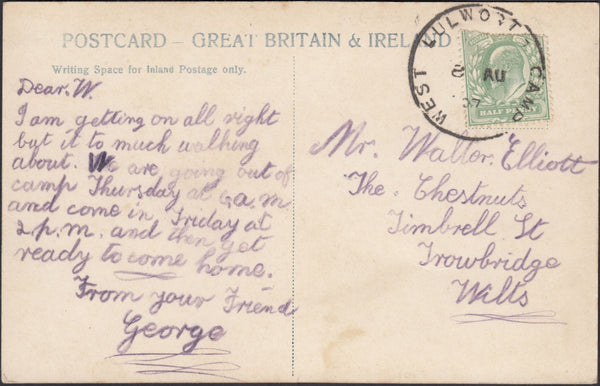 POSTCARD – GREAT BRITAIN & IRELAND
Writing Space for Inland Postage only.
Dear. W.
I am getting on all right
but it to much walking
about. We are going out of
camp Thursday at 6 a.m
and come in Friday at
2 p.m. and then get
ready to come home.
From your Friend
George
WEST LULWORTH CAMP
AU
07
HALF PENNY
Mr. Walter. Elliott
The. Chestnuts
Timbrell St
Trowbridge
Wilts